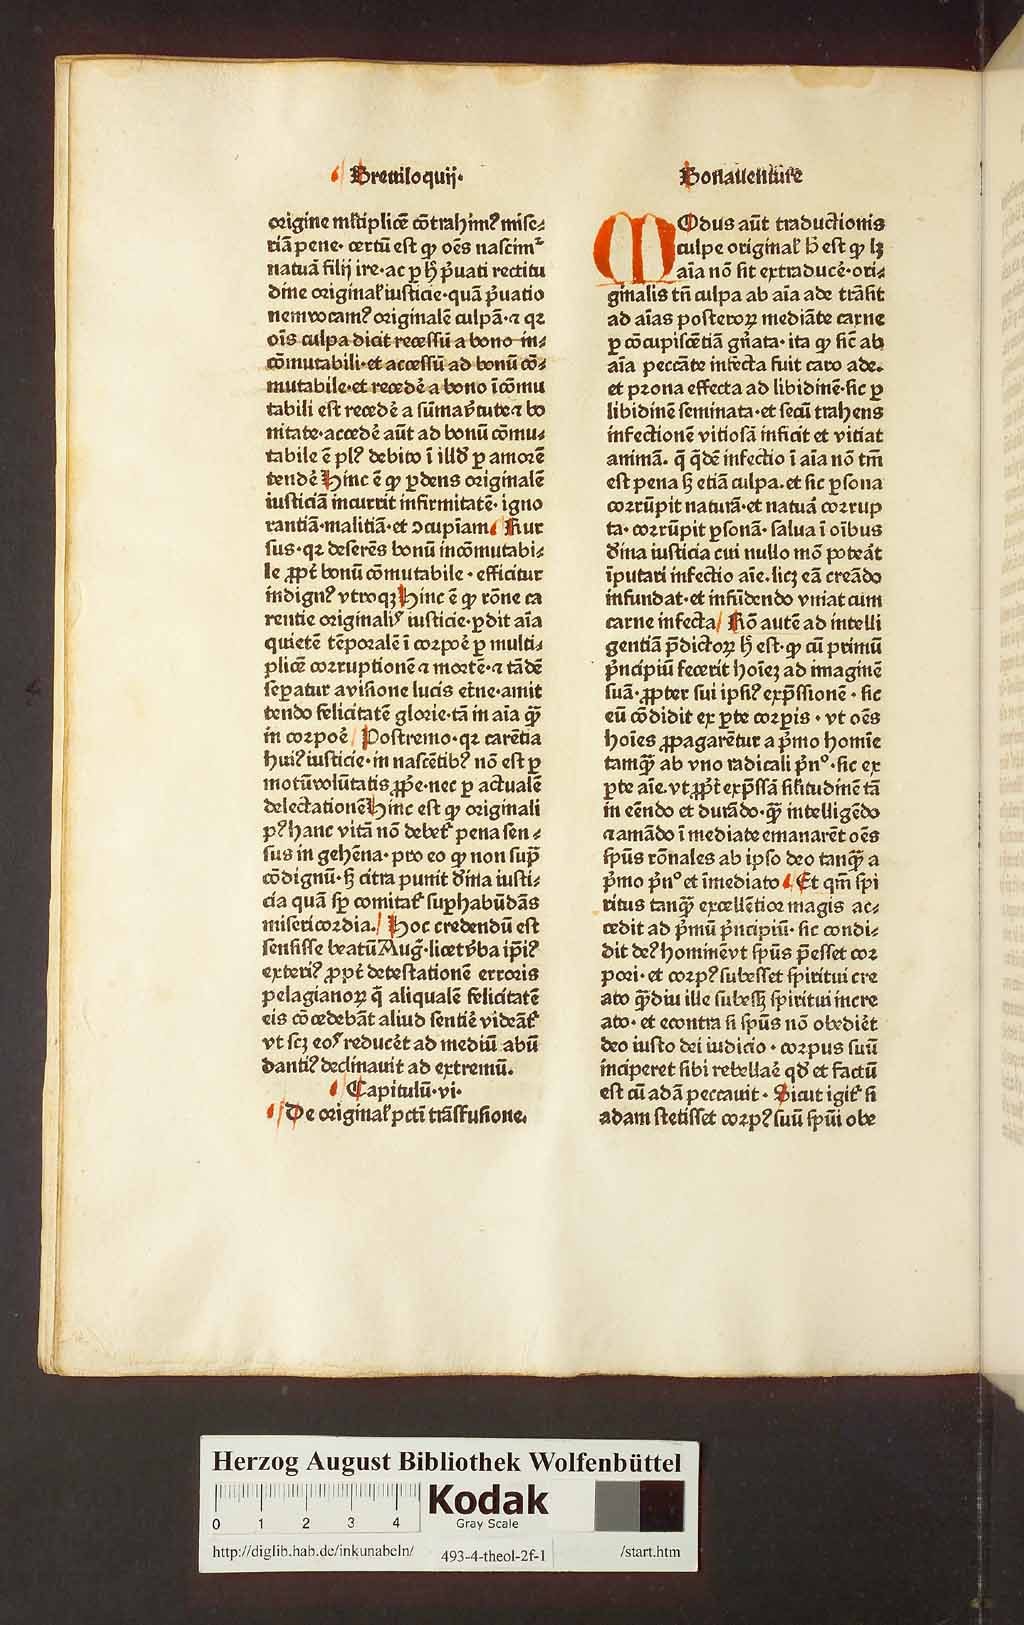 Breuiloquij.
Bonauenture
origine mĺtiplicē cōtrahimꝰ mise⸗
riā pene· certū est ꝙ oēs nascimᷣ
natuā filij ire·ac p ꝑ ħ p̄uati rectitu
dine originaĺ iusticie·quā p̄uatio
nem vocamꝰ originalē culpā·⁊ qꝛ
oīs culpa dicit recessū a bono in⸗
cōmutabili·et accessū ad bonū cō⸗
mutabile·et recedē a bono īcōmu
tabili est recedē a sūma v̄tute ⁊ bo
nitate·accedē aūt ad bonū cōmu⸗
tabile ē plꝰ debito ī illđ ꝑ amorē
tendē Hinc ē ꝙ ꝑdens originalē
iusticiā incurrit infirmitatē· igno
rantiā·malitiā·et ɔcupīam. Rur
sus·qꝛ deserēs bonū incōmutabi⸗
le ꝓpt̄ bonū cōmutabile · efficitur
indignꝰ vtroqꝫ Hinc ē ꝙ rōne ca
rentie originaliꝰ iusticie·ꝑdit aīa
quietē tēporalē ī corpoē ꝑ multi⸗
plicē corruptionē ⁊ mortē·⁊ tādē
seꝑatur a visione lucis et̄ne·amit
tendo felicitatē glorie·tā in aīa q̄ꝫ
in corpoē Postremo·qꝛ carētia
huiꝰ iusticie·in nascētibꝰ nō est ꝑ
motū volūtatis ꝓpe·nec ꝑ actualē
delectationē Hinc est ꝙ originali
pꝰ hanc vitā nō debet̄ pena sen⸗
sus in gehēna· pro eo ꝙ non sup̄
cōdignū·sꝫ citra punit diīna iusti⸗
cia quā sp̄ comitat̄ suꝑhabūdās
misericordia. Hoc credendū est
sensisse beatū Auḡ·licet v̄ba ip̄iꝰ
exteriꝰ ꝓpt̄ detestationē erroris
pelagianoꝝ q̄ aliqualē felicitatē
eis cōcedebāt aliud sentiē videāt̄
vt scꝫ eoꝰ reducēt ad mediū abū
dantiꝰ declinauit ad extremū.
Capitulū·vi·
De originaĺ pctī trāsfusione.
MOdus aūt traductionis
culpe originaĺ ħ est ꝙ lꝫ
aīa nō sit extraducē·ori⸗
ginalis tn̄ culpa ab aīa ade trāsit
ad aīas posteroꝝ mediāte carne
ꝑ cōcupiscētiā gn̄ata·ita ꝙ sic̄ ab
aīa peccāte infecta fuit caro ade.
et prona effecta ad libidinē·sic ꝑ
libidinē seminata·et secū trahens
infectionē vitiosā inficit et vitiat
animā. q̄ q̄dē infectio ī aīa nō tm̄
est pena sꝫ etiā culpa.et sic ꝑsona
corrūpit naturā·et natuā corrup
ta·corrūpit ꝑsonā· salua ī oībus
diīna iusticia cui nullo mō poteāt
īputari infectio aīe.licꝫ eā creādo
infundat·et infūdendo vniat cum
carne infecta Rō autē ad intelli
gentiā p̄dictoꝝ ħ est·ꝙ cū primū
p̄ncipiū fecerit hoīeꝫ ad imaginē
suā·ꝓpter sui ipsiꝰ exp̄ssionē · sic
eū cōdidit ex ꝑte corꝑis · vt oēs
hoīes ꝓpagarētur a p̄mo homīe
tamq̄ꝫ ab vno radicali p̄nº·sic ex
ꝑte aīe.vt ꝓpt̄ exp̄ssā sil̄itudinē tā
in eēndo et durādo·q̄ꝫ intelligēdo
⁊ amādo īmediate emanarēt oēs
sp̄us rōnales ab ipso deo tanq̄ꝫ a
p̄mo p̄nº et īmediato Et qm̄ spi
ritus tanq̄ꝫ excellētior magis ac⸗
cedit ad p̄mū p̄ncipiū· sic condi⸗
dit deꝰ hominē vt sp̄us p̄esset cor
pori · et corpꝰ subesset spiritui cre
ato q̄ꝫdiu ille subesꝫ spiritui incre
ato· et econtra si sp̄us nō obediēt
deo iusto dei iudicio · corpus suū
inciperet sibi rebellaē qđ et factū
est cū adā peccauit · Sicut igit̄ si
adam stetisset corpꝰ suū sp̄ui obe
Herzog August Bibliothek Wolfenbüttel
0 1 2 3 4
Kodak
Gray Scale
http://diglib.hab.de/inkunabeln/ 493-4-theol-2f-1 /start.htm